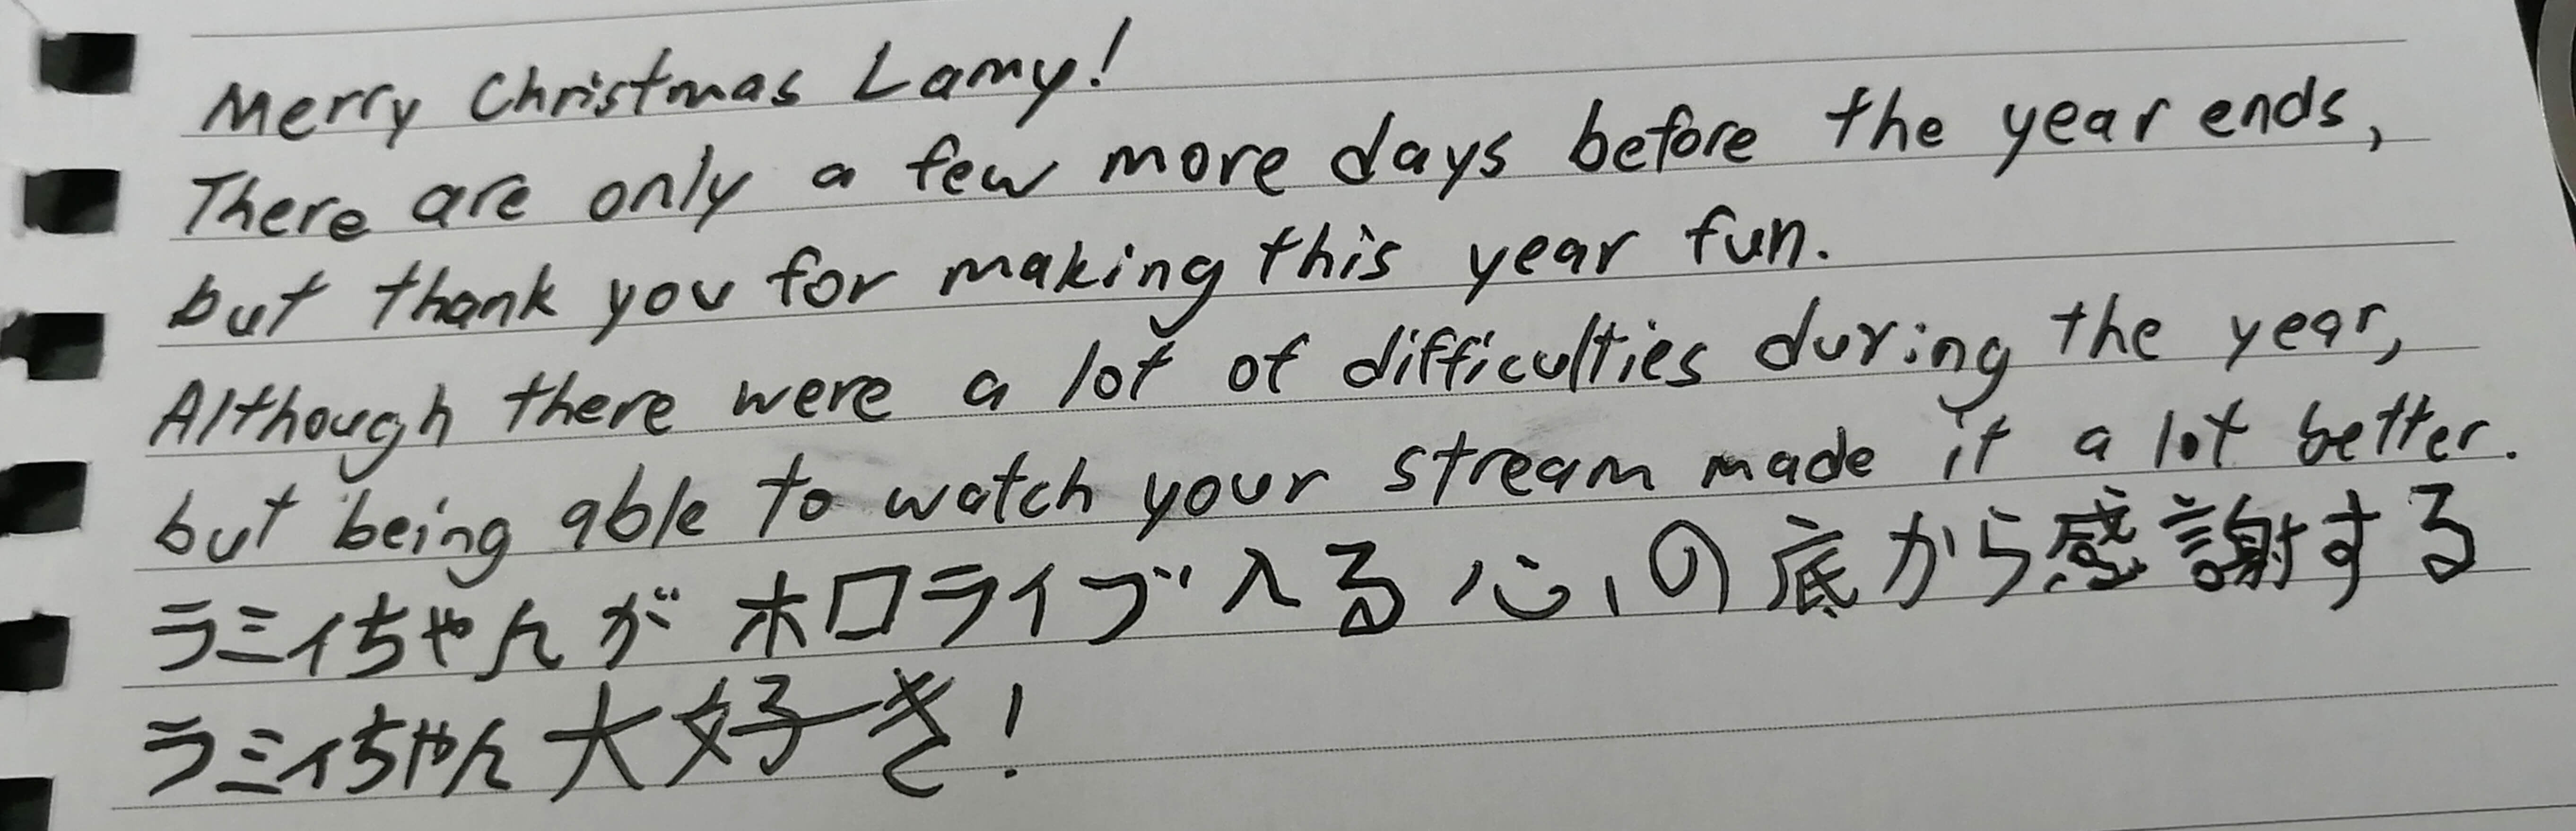 Merry Christmas Lamy!
There are only a few more days before the year ends,
but thank you for making this year fun.
Although there were a lot of difficulties during the year,
but being able to watch your stream made it a lot better.
ラミィちゃんが ホロライブ入る心の底から感謝する
ラミィちゃん大好き!